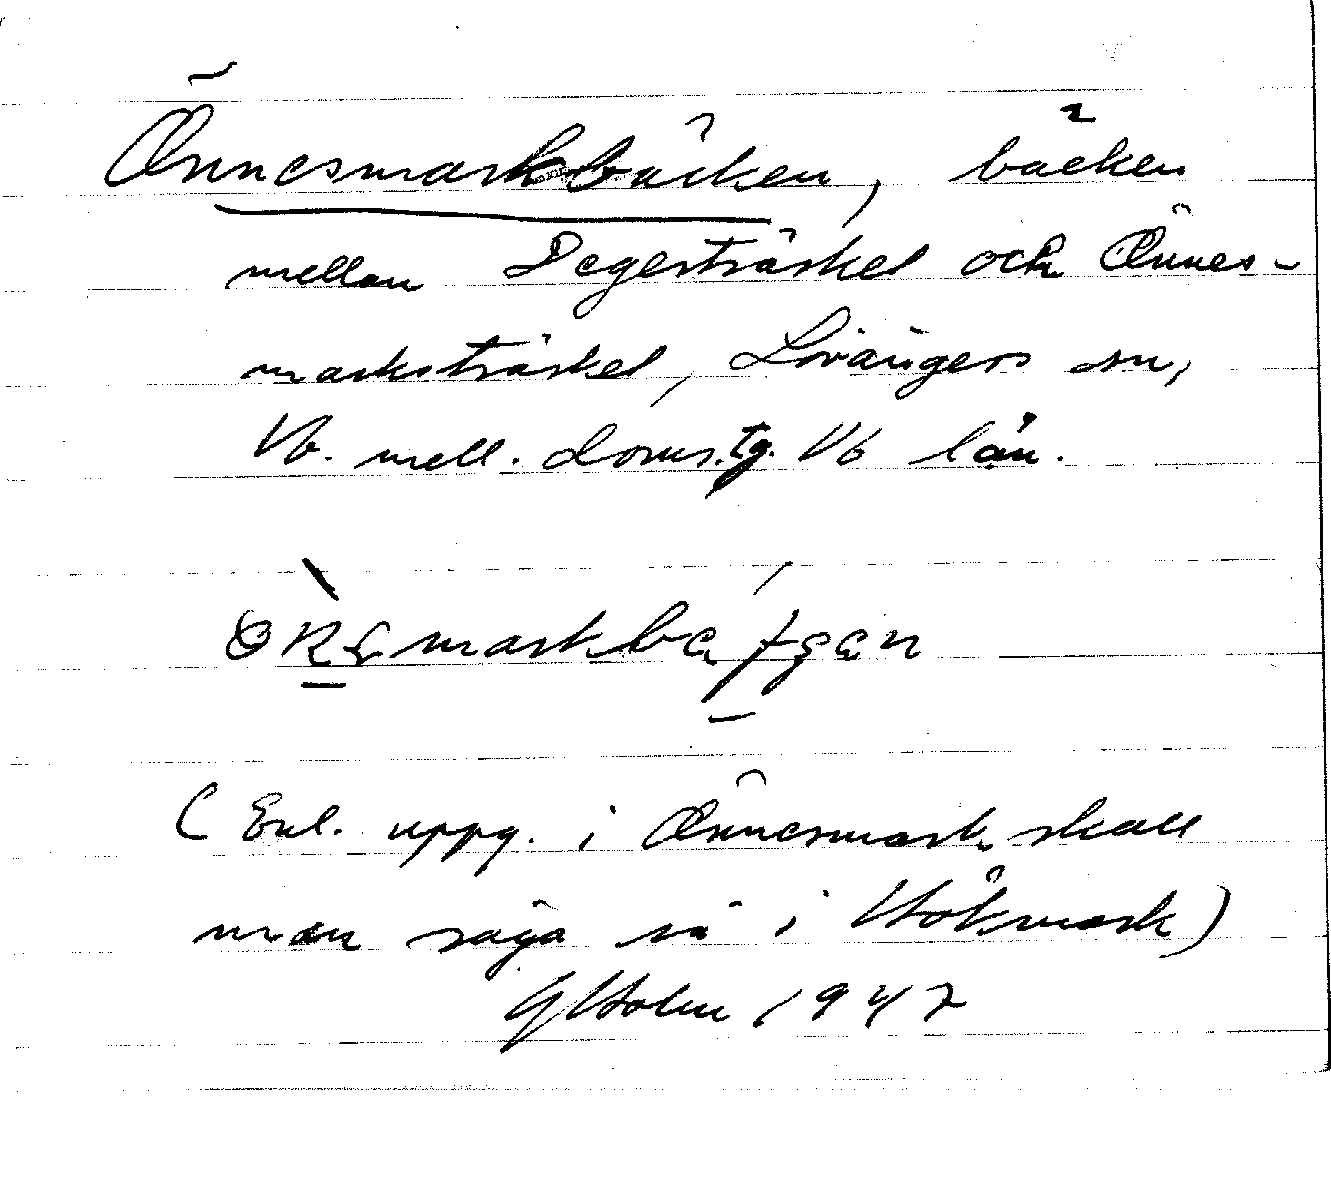 Önnesmarkbäcken, bäcken
mellan Degerträsket och Önnes-
marksträsket, Lövångers sn,
Vb. mell. doms.tg. Vb län.
(Enl. uppg. i Önnesmark skall
man säga så i Hökmark)
G Holm 1947